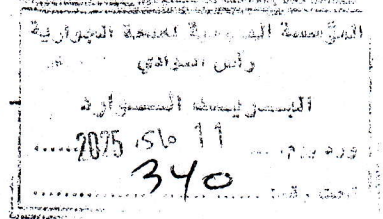 المؤسسة العمومية للصحة الجوارية
رأس الوادي
البريد الوارد
ورد يوم: .... 11 ماي 2025 ......
تحت رقم: ...... 340 ......